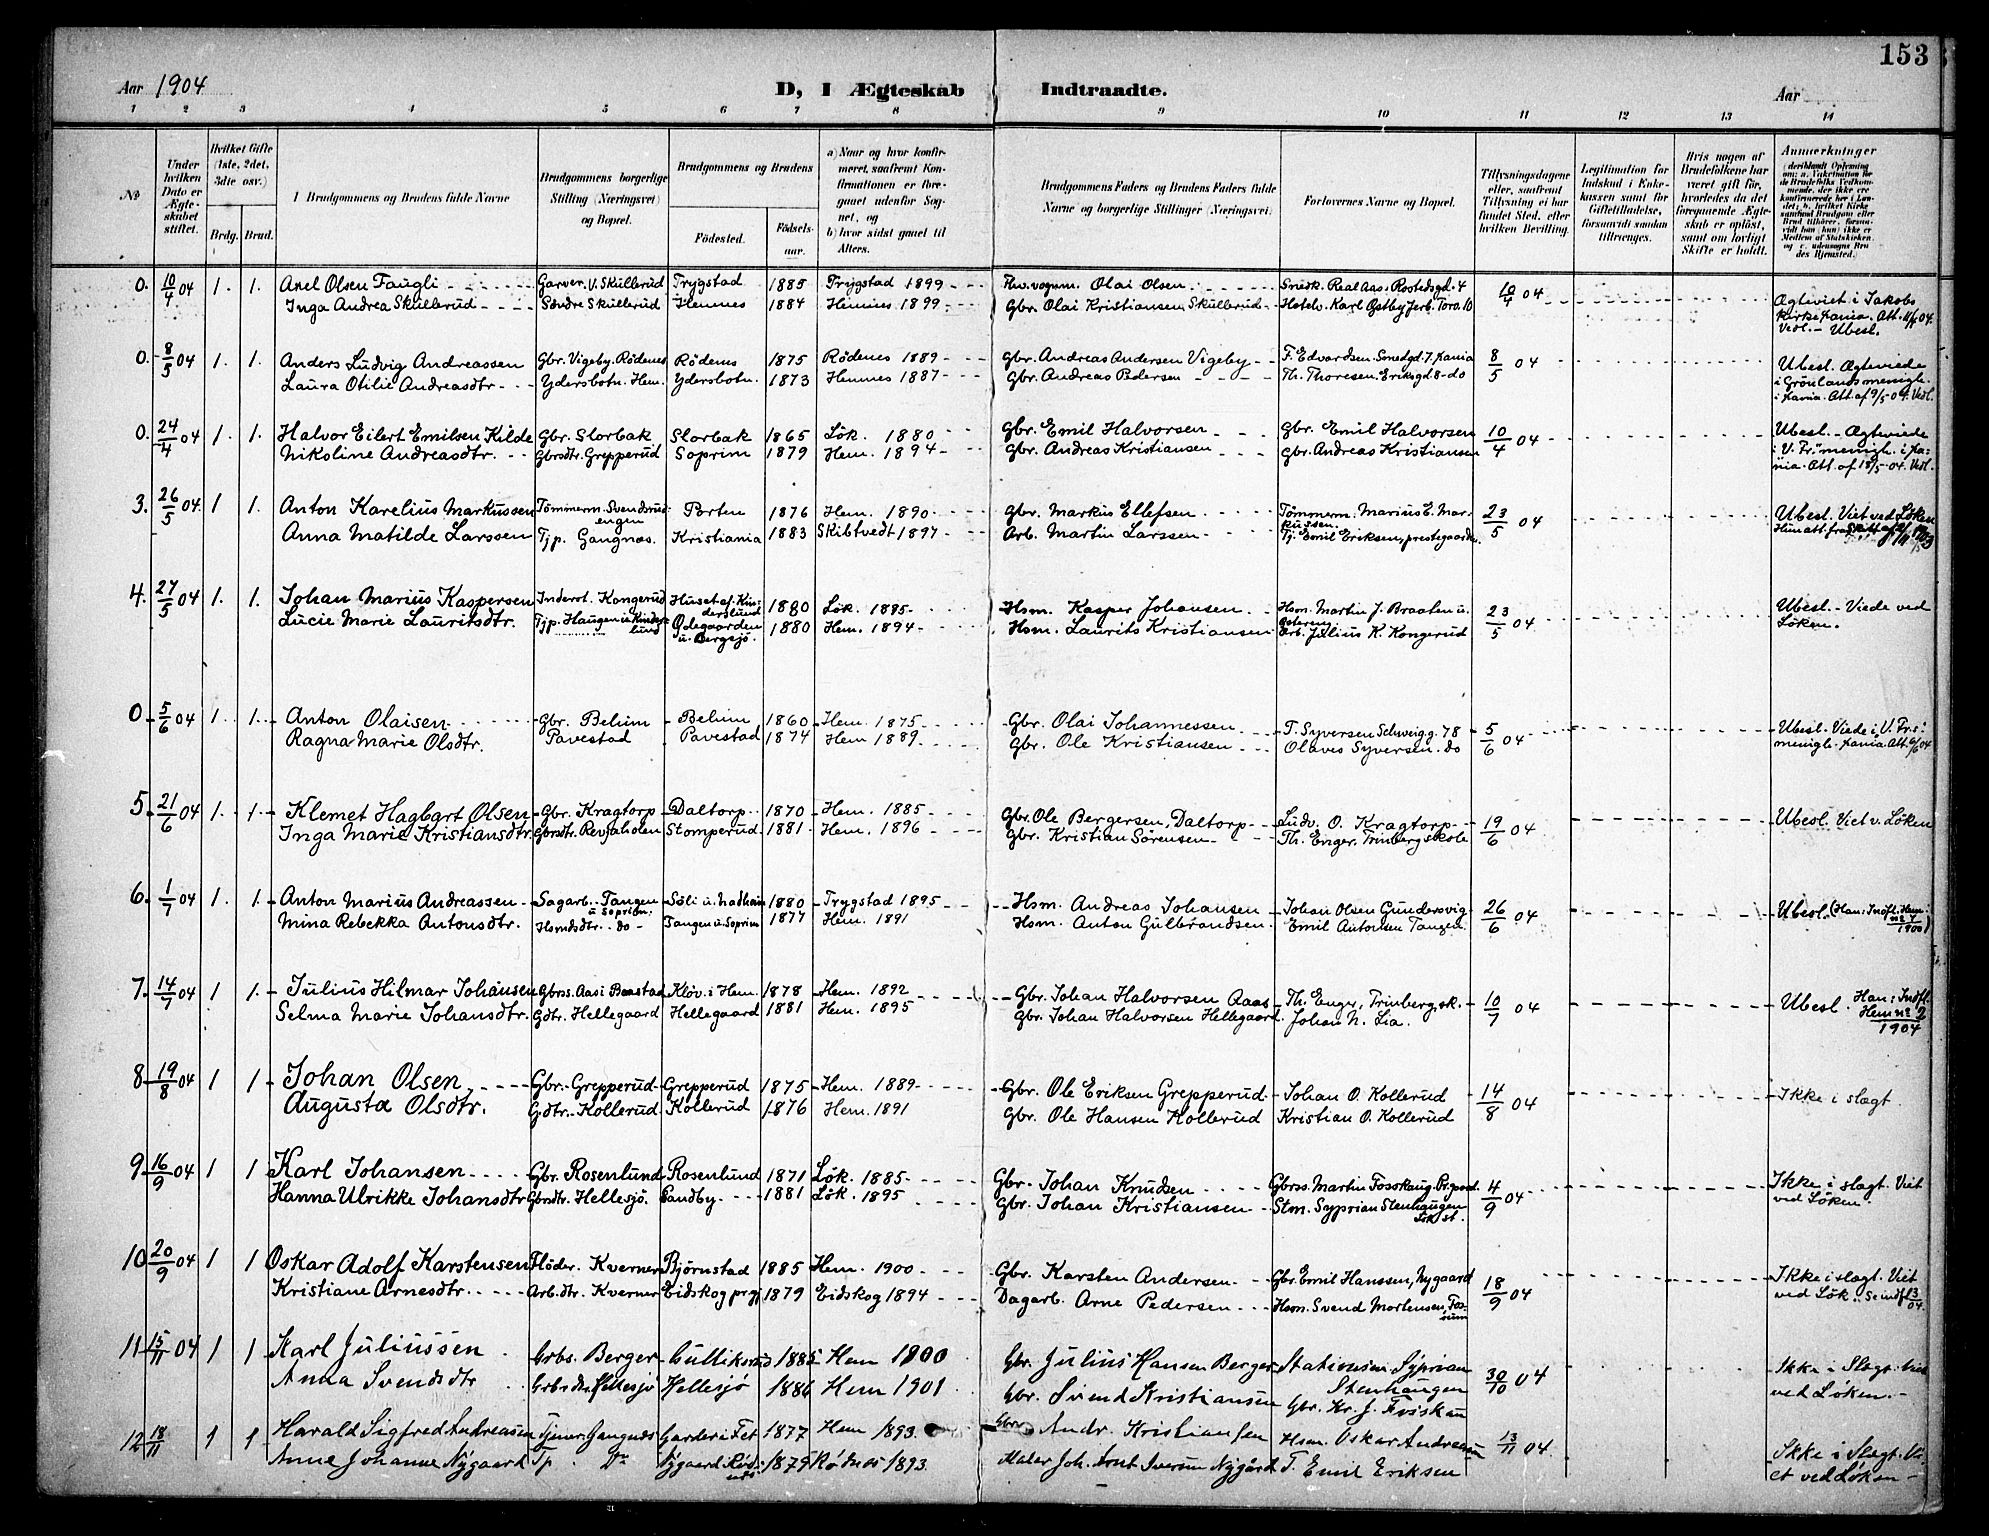 153
Aar 1904
D, I Ægteskab Indtraadte.
Aar
1 2 3 4 5 6 7 8 9 10 11 12 13 14
№
Under hvilken Dato er Ægteskabet stiftet.
Hvilket Gifte (1ste, 2det, 3die osv.)
Brdg. Brud.
I Brudgommens og Brudens fulde Navne
Brudgommens borgerlige Stilling (Næringsvei) og Bopæl.
Brudgommens og Brudens
Fødested. Fødselsaar.
a) Naar og hvor konfirmeret, saafremt Konfirmationen er foregaaet udenfor Sognet, og b) hvor sidst gaaet til Alters.
Brudgommens Faders og Brudens Faders fulde Navne og borgerlige Stillinger (Næringsvei)
Forlovernes Navne og Bopæl.
Tillysningsdagene eller, saafremt Tillysning ei har fundet Sted, efter hvilken Bevilling.
Legitimation for Indskud i Enkekassen samt for Giftetilladelse, forsaavidt saadan tiltrænges.
Hvis nogen af Brudefolkene har været gift før, hvorledes da det foregaaende Ægteskab er opløst, samt om lovligt Skifte er holdt.
Anmærkninger
0. 10/4 04 1. 1. Axel Olsen Faugli Garver. V. Skullerud Trygstad 1885 Trygstad 1899 Olai Olsen 10/4 04
Inga Andrea Skullerud Søndre Skullerud Hemnes 1884 Hemnes 1899 Gbr. Olai Kristiansen Skullerud Hotelv. Karl Østby Jerb. Torv. 10 Ægteviet i Jakobs kirke Xania. Att. 11/4 04. Vedl. - Ubesl.
0. 8/5 04 1. 1. Anders Ludvig Andreassen Gbr. Vigeby. Rödenes Rödenes 1875 Rödenes 1889 Gbr. Andreas Andersen Vigeby F. Edvardsen. Smedgd. 7. Xania 8/5 04 Ubesl. Ægteviede
Laura Otilie Andreasdtr Ydersbotn. Hem. Ydersbotn. 1873 Hemnes 1887 Gbr. Andreas Pedersen Th. Thoresen. Eriksgd. 8 - do i Grönlands menigh. i Xania. Att. af 9/5 04. Vedl.
0. 24/4 04 1. 1. Halvor Eilert Emilsen Kilde Gbr. Slorbak Slorbak 1865 Lök. 1880 Gbr. Emil Halvorsen Gbr. Emil Halvorsen 10/4 04 Ubesl. - Ægteviede
Nikoline Andreasdtr. Gbrsdtr. Grepperud Soprim 1879 Hem. 1894 Gbr. Andreas Kristiansen Gbr. Andreas Kristiansen i V. Fr. menigh. i Xania. Att. af 18/5-04. Vedl.
3. 26/5 04 1 1. Anton Karelius Markussen Tömmerm. Svendsrudengen Porten 1876 Hem. 1890 Gbr. Markus Ellefsen Tömmerm. Marius E. Markussen 23/5 04 Ubesl. Viet ved Löken
Anna Matilde Larssen Tjp. Gangnæs. Kristiania 1883 Skibtvedt 1897 Arb. Martin Larssen Tj. Emil Eriksen, prestegaarden.
4. 27/5 04 1. 1. Johan Marius Kaspersen Inderst. Kongerud Huset af. Kinderslund 1880 Lök. 1895 Hsm. Kasper Johansen Hsm. Martin J. Braaten u. 23/5 04 Ubesl. - Viede ved Löken.
Lucie Marie Lauritsdtr. Tjp. Haugen u. Kinderlund Ødegaarden u. Bergsjö 1880 Hem. 1894 Hsm. Laurits Kristiansen Arb. Julius K. Kongerud
0 5/6 04 1. 1. Anton Olaisen Gbr. Behim Behim 1860 Hem. 1875 Gbr. Olai Johannessen T. Syversen Schweigg. 78 5/6 04 Ubesl. Viede i V. Fr.s:
Ragna Marie Olsdtr. Pavestad Pavestad 1874 Hem 1889. Gbr. Ole Kristiansen Olaves Syversen. do menigh. Xania. Att. 6/6 04
5. 21/6 04 1. 1. Klemet Hagbart Olsen Gbr. Kragtorp Daltorp 1870 Hem. 1885 Gbr. Ole Bergersen, Daltorp Ludv. O. Kragtorp 19/6 04 Ubesl. Viet v. Löken
Inga Marie Kristiansdtr. Gbrsdtr. Revjaholen Stomperud. 1881 Hem. 1896 Gbr. Kristian Sörensen Th. Enger. Trinberg skole
6. 1/7 04 1. 1. Anton Marius Andreassen Sagarb. Tangen u. Soprim. Söli u. Nadheim 1880 Trygstad 1895 Hsm. Andreas Johansen Johan Olsen Gundersvig 26/6 04 Ubesl. (Han: Indfl. Hem. no 4 1900)
Mina Rebekka Antonsdtr. Hsmdsdtr. do Tangen u. Soprim 1877 Hem. 1891 Hsm. Anton Gulbrandsen Emil Antonsen Tangen
7. 14/7 04 1 1. Julius Hilmar Johansen Gbrss. Aas i Baastad Klöv. i Hem. 1878 Hem. 1892 Gbr. Johan Halvorsen Aaas Th. Enger, Trinberg sk. 10/7 04 Ubesl. Han: Indfl. Hem no 2 1904
Selma Marie Johansdtr. Gdtr. Hellegaard Hellegaard 1881 Hem. 1895 Gbr. Johan Halvorsen Hellegaard. Johan N. Lia.
8 19/8 04 1 1 Johan Olsen Gbr. Grepperud Grepperud 1875 Hem. 1889 Gbr. Ole Eriksen Grepperud Johan O. Kollerud 14/8 04 Ikke i slægt
Augusta Olsdtr. Gdtr. Kollerud Kollerud 1876 Hem. 1891 Gbr. Ole Hansen Kollerud Kristian O. Kollerud
9 16/9 04 1 1 Karl Johansen Gbr. Rosenlund Rosenlund 1871 Lök. 1885 Gbr. Johan Knudsen Gbrss. Martin Fosshaug 4/9 04 Ikke i slægt. Viet ved Löken
Hanna Ulrikke Johansdtr. Gbrsdtr. Hellesjö. Sandby 1881 Lök. 1895 Gbr. Johan Kristiansen Stm. Syprian Stenhaugen Lök st.
10 20/9 04 1 1 Oskar Adolf Karstensen Flöder. Kverner Björnstad 1885 Hem. 1900 Gbr. Karsten Andersen Gbr. Emil Hanssen, Nygaard 18/9 04 Ikke i slægt. Viet ved Lök.
Kristiane Arnesdtr. Arb.dtr. Kverner Eidskog prgj. 1879 Eidskog 1894 Dagarb. Arne Pedersen Hsm. Svend Mortensen, Fossum
11 15/11 04 1 1 Karl Juliussen Grbs. Berger Gulliksrud 1885 Hem 1900 Gbr. Julius Hansen Berger Stationsm. Syprian Stenhaugen 30/10 04 Ikke i Slægt. Viet ved Löken.
Anna Svendsdtr Grbsdtr Hellesjö Hellesjö 1886 Hem 1901 Gbr. Svend Kristiansen Gbr. Kr. J.
12 18/11 1 1 Harald Sigfred Andreasen Tjener. Gangnæs Garder i Fet 1877 Hem 1893. Gbr. Andr. Kristiansen Hsm. Oskar Andreasen 13/11 04 Ikke i Slægt. Vi-
Anne Johanne Nygaard Tp. Do Nygaard Röd: nes 1879 Rödnes 1893. Maler Joh. Arnt Iversen Nygård T. Emil Eriksen et ved Löken